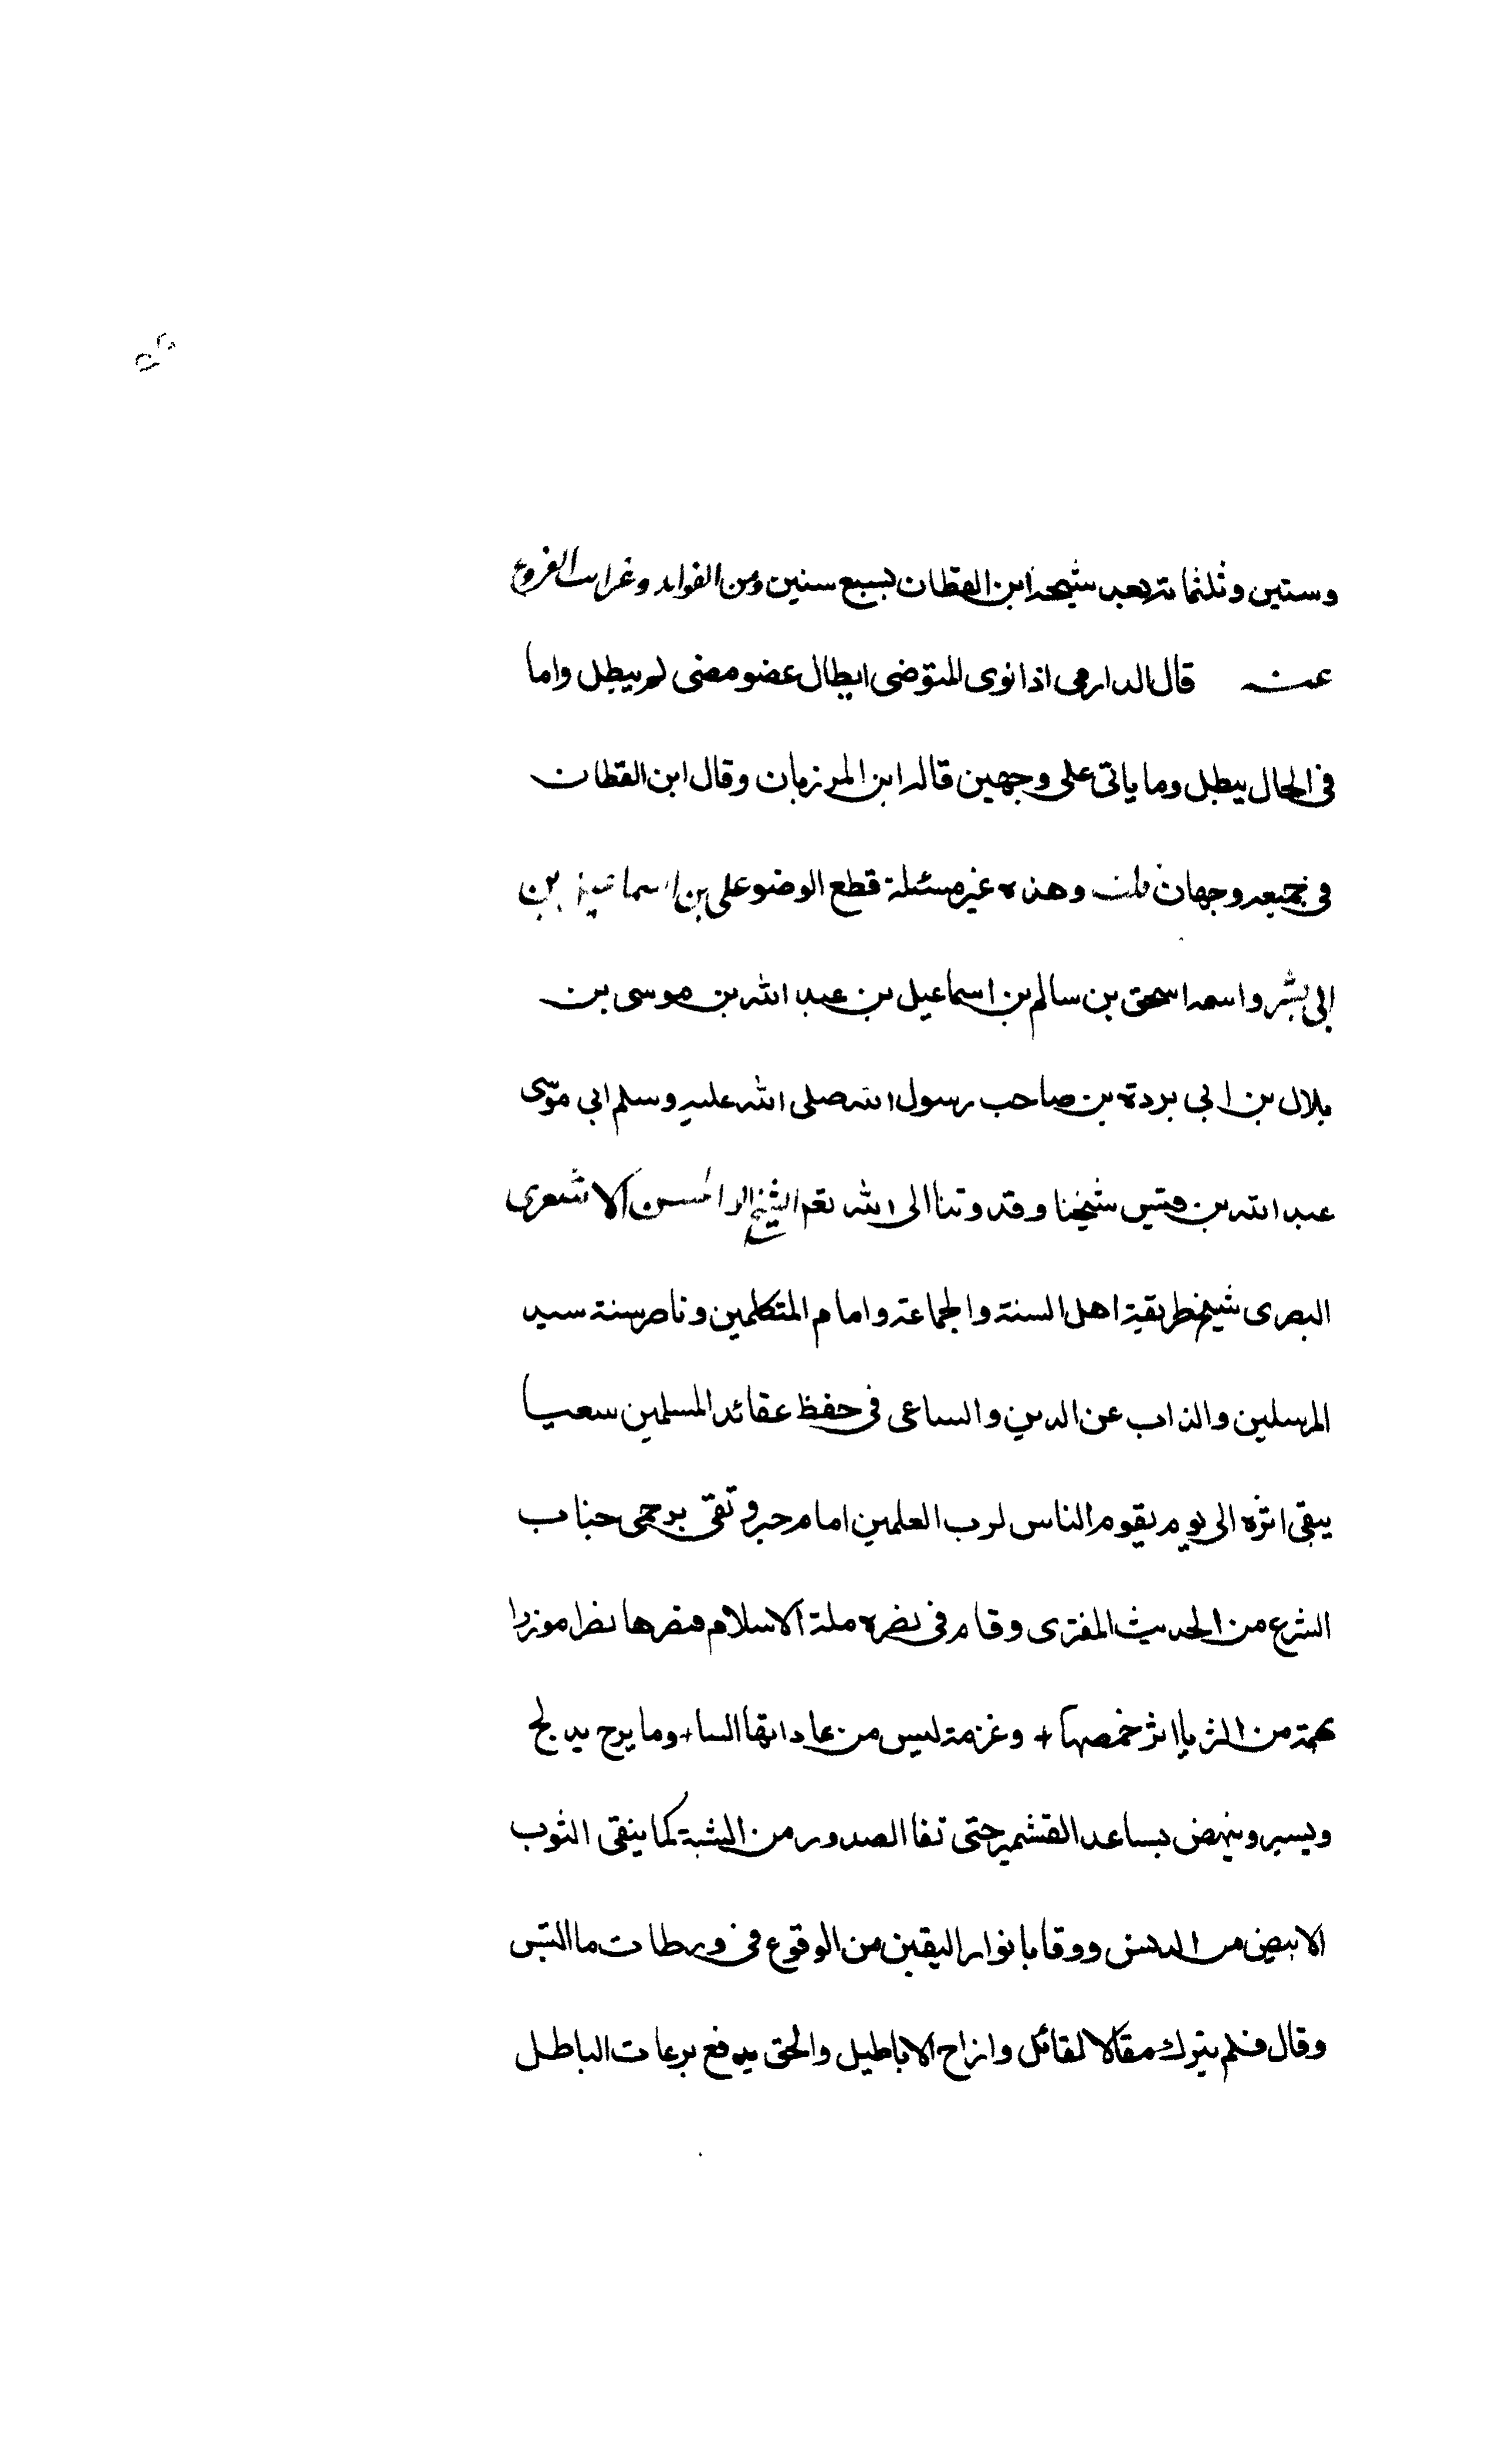 وستين وثلثمائة بعد شيخه ابن القطان بسبع سنين ومن الفوايد وغرايب الفروع
عنه قال الدارمى اذا نوى المتوضى ابطال عضو مضى لم يبطل واما
فى الحال يبطل وما ياتى على وجهين قاله ابن المرزبان وقال ابن القطان
فى جميعه وجهان قلت وهذه غير مسئلة قطع الوضو على بن اسماعيل بن
ابى بشر واسمه اسحق بن سالم بن اسماعيل بن عبد الله بن موسى بن
بلال بن ابى بردة بن صاحب رسول الله صلى الله عليه وسلم ابى موسى
عبد الله بن قيس شيخنا وقدوتنا الى الله تعم الشيخ ابو الحسن الاشعرى
البصرى شيخ طريقة اهل السنة والجماعة وامام المتكلمين وناصر سنة سيد
المرسلين والذاب عن الدين والساعى فى حفظ عقائد المسلمين سعيا
يبقى اثره الى يوم يقوم الناس لرب العلمين امام حبر وتقى بر حمى جناب
الشرع من الحديث المفترى وقام فى نصره ملة الاسلام فنصرها نصرا موزرا
بهمة من الثريا اثر خمصها + وعزمة ليس من عاداتها السا+ وما برح يدلج
ويسير وينهض بساعد القشمير حتى نفا الصدور من الشبة كما ينقى الثوب
الابيض من الدنس ووقا بانوار اليقين من الوقوع فى ورطات ما التبس
وقال فلم يترك مقالا لقائل وازاح الاباطيل والحق يدفع برعات الباطل